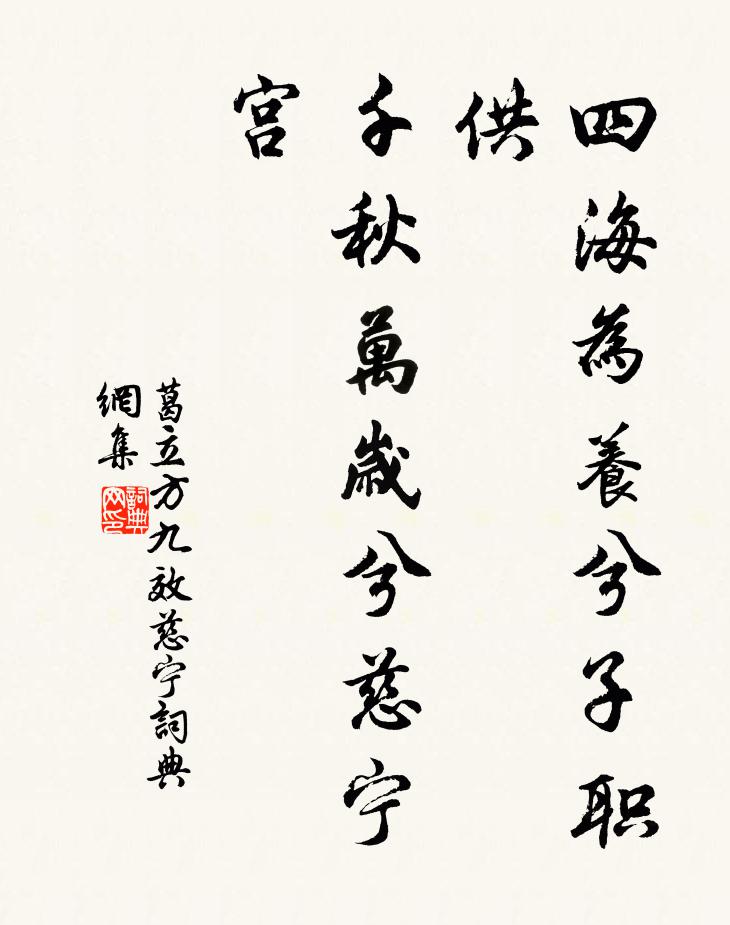 四海為養兮子职
供
千秋萬歲兮慈宁
宫
葛立方九效慈宁詞典
網集
詞典
网印